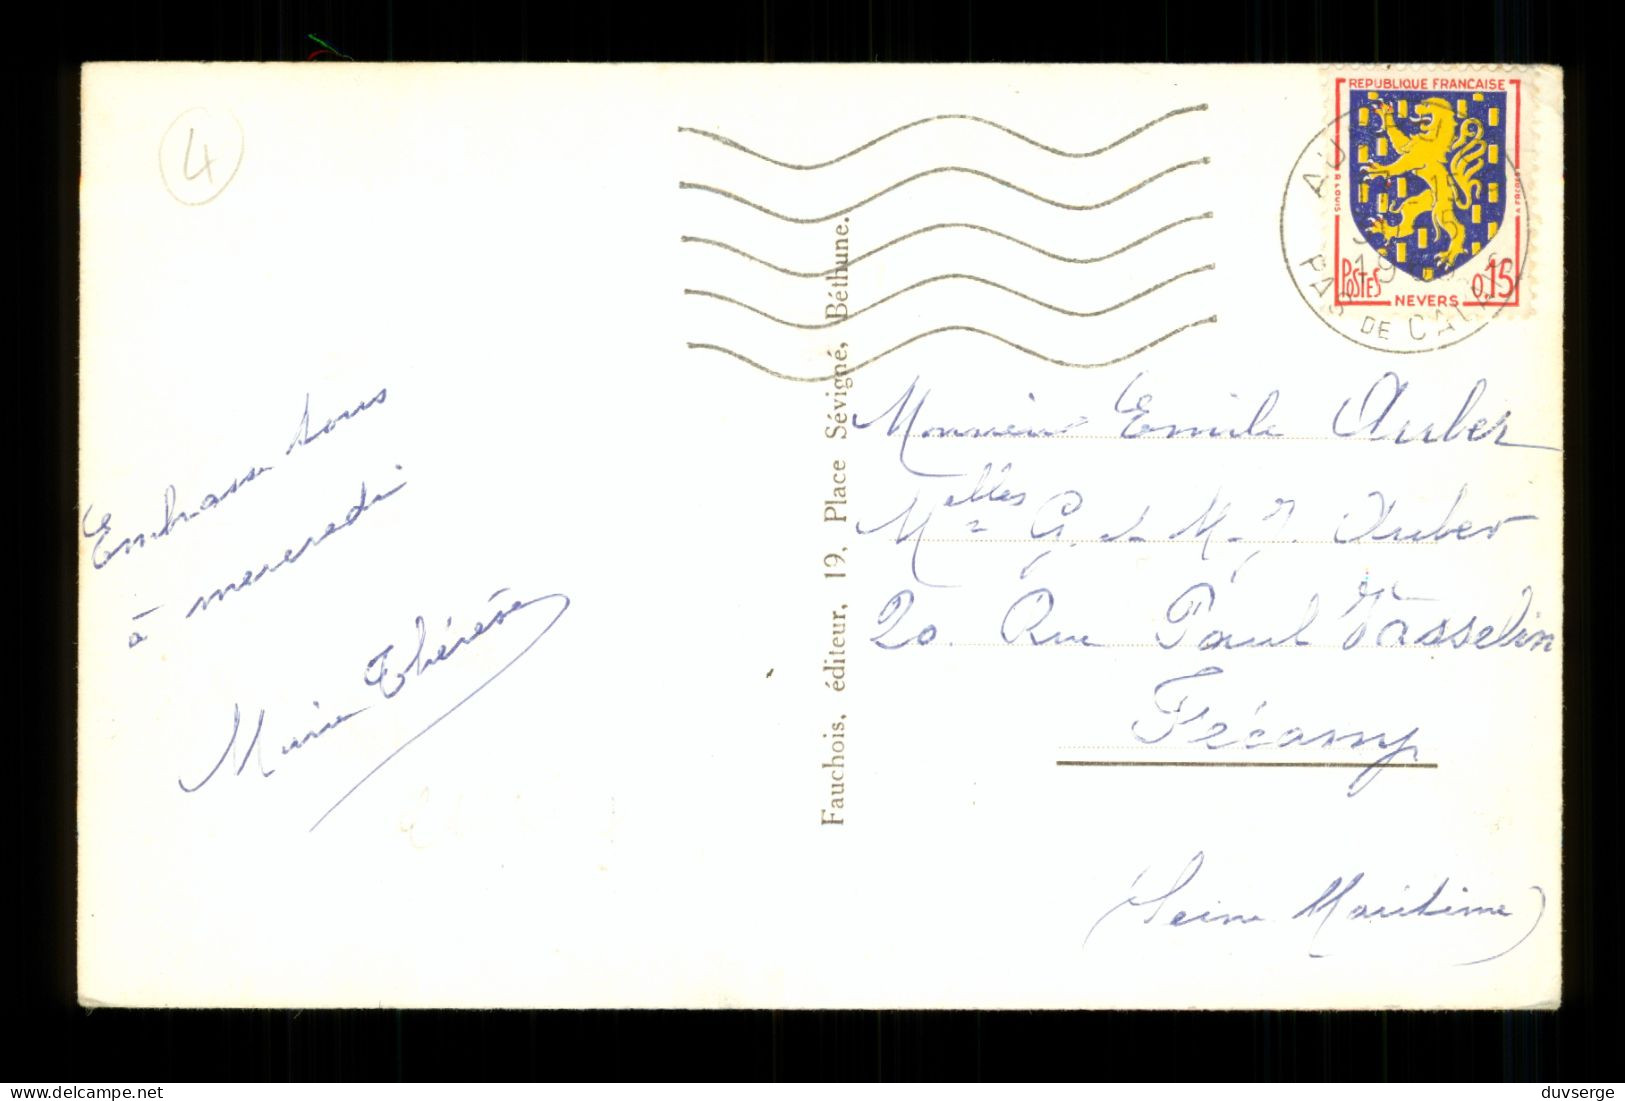 4
REPUBLIQUE FRANCAISE
POSTES
NEVERS
0,15
PAS DE CALAIS
Embrasse tous
à mercredi
Marie Thérèse
Fauchois, éditeur, 19, Place Sévigné, Béthune.
Monsieur Emile Auber
Melles G. et M. J. Auber
20. Rue Paul Vasselin
Fécamp
(Seine Maritime)
delcampe.net
duvserge